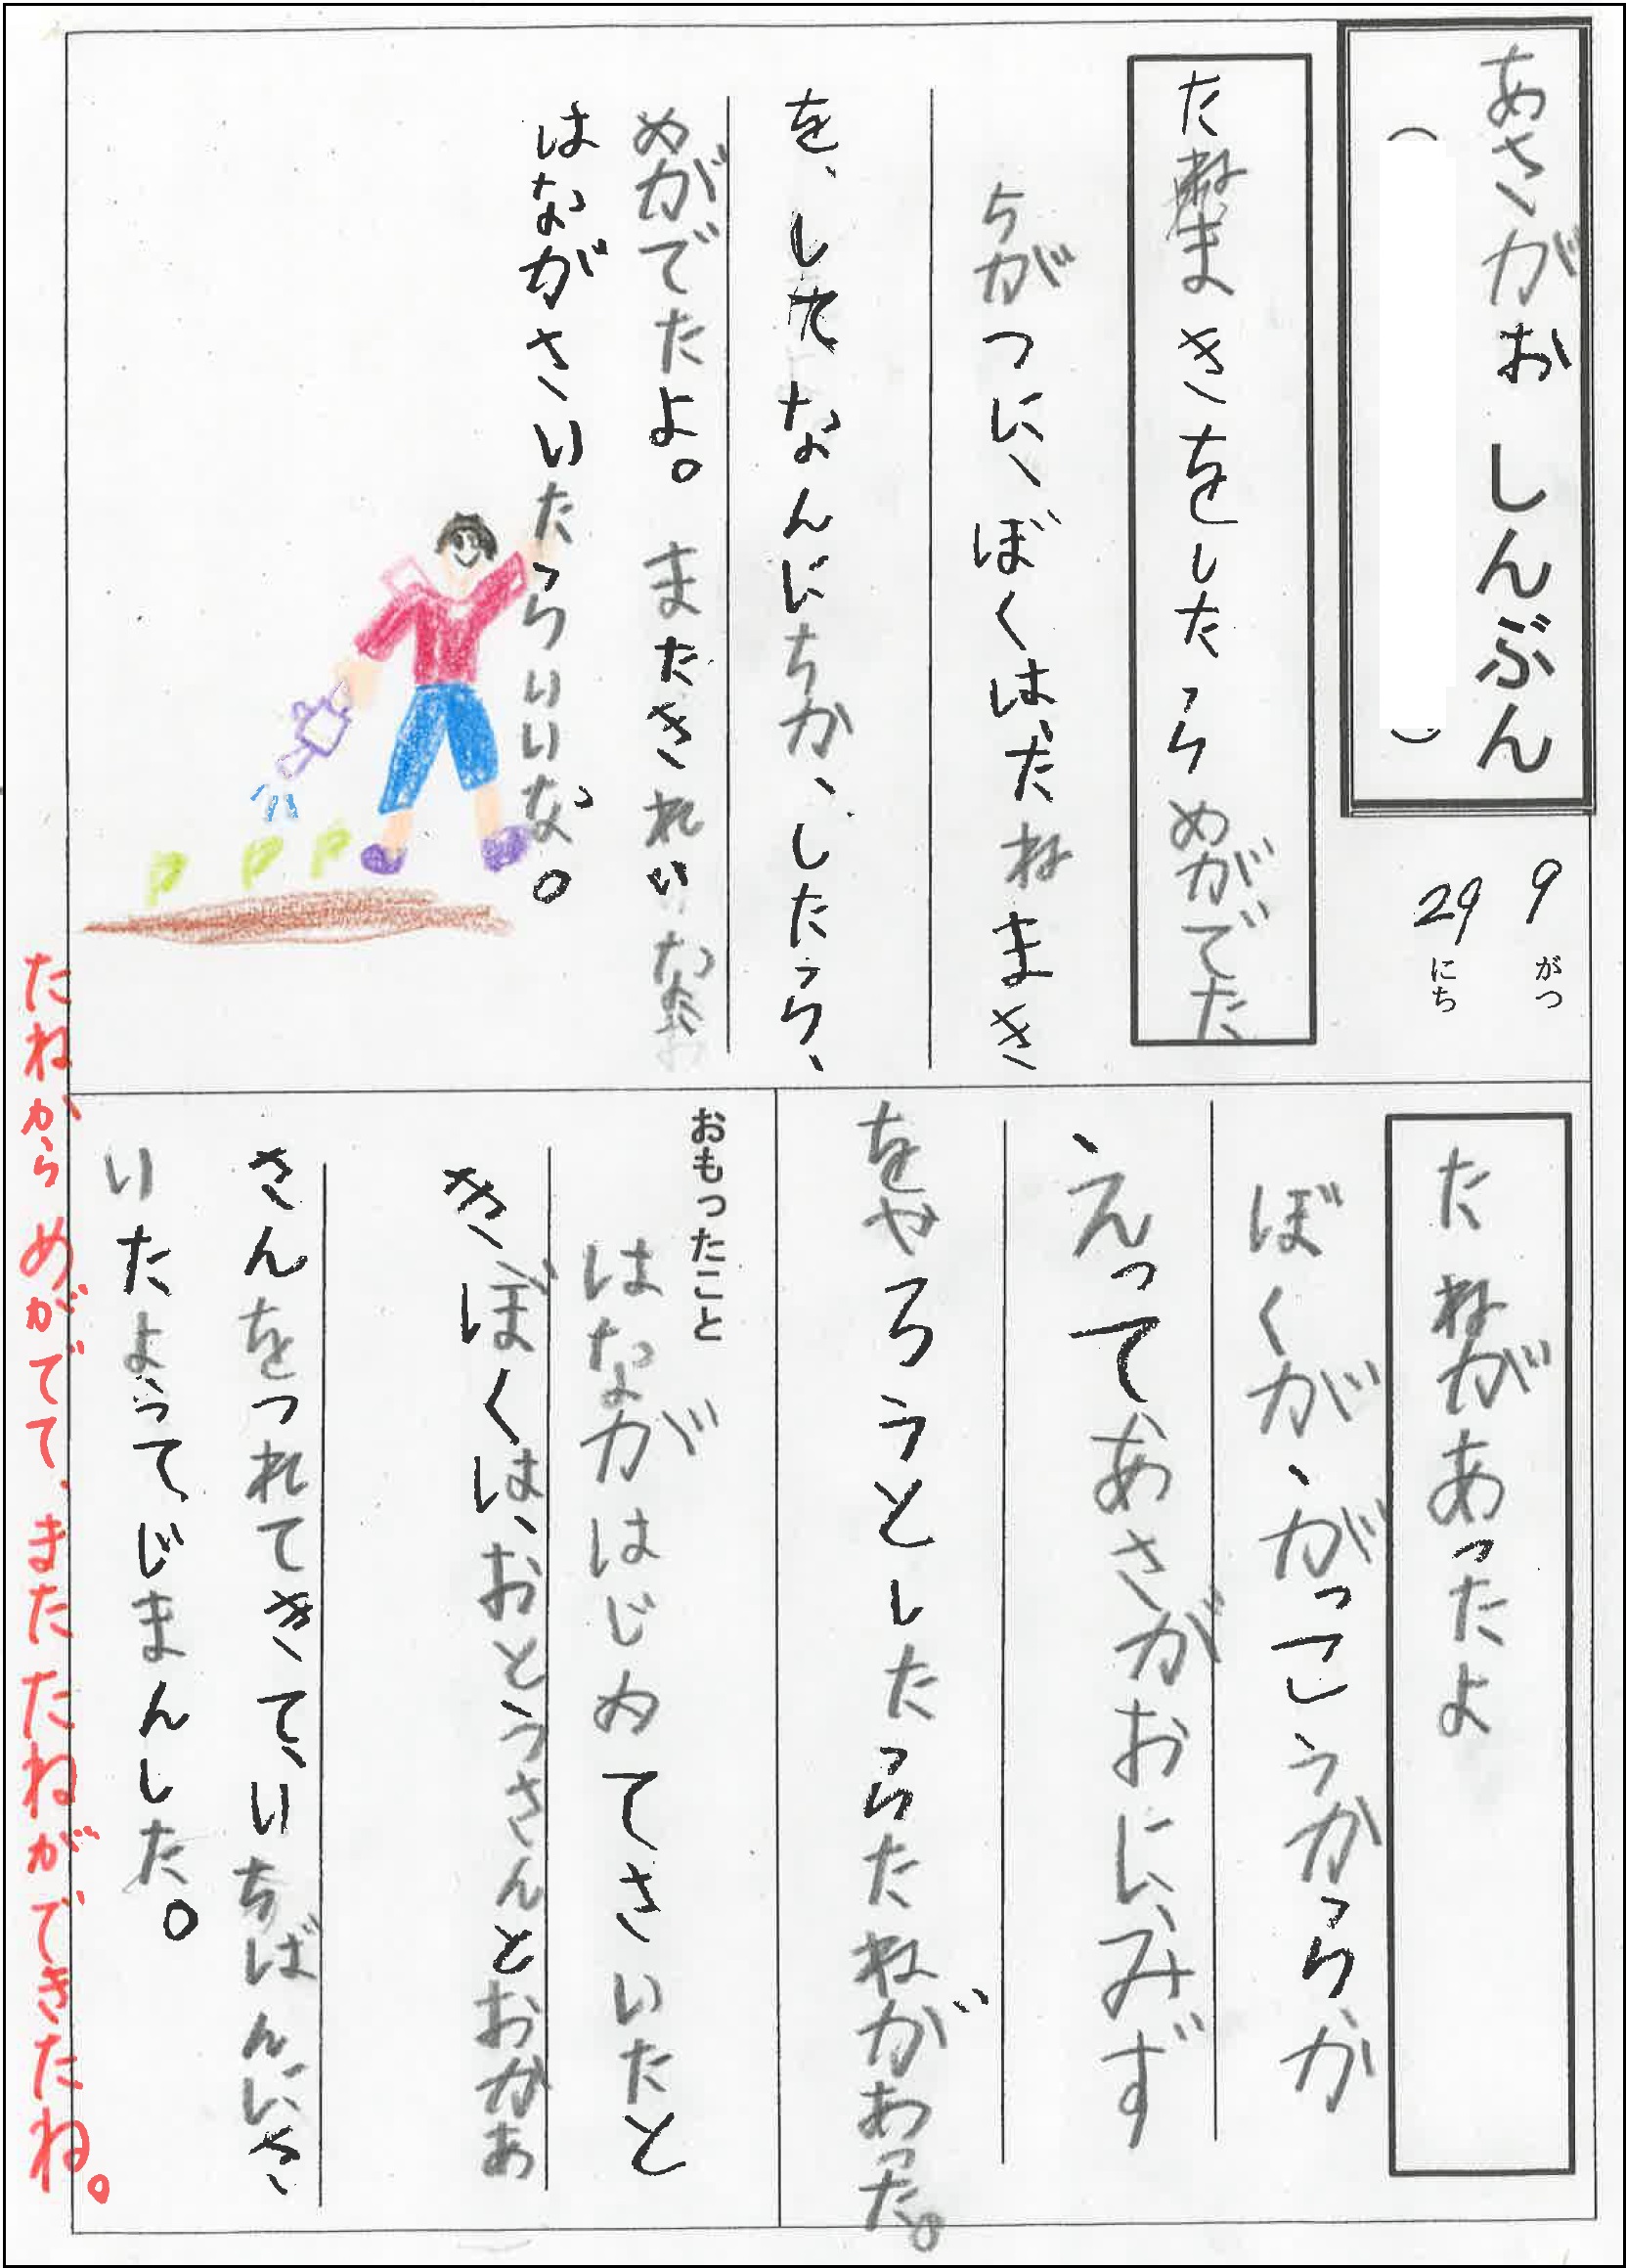 あさがお しんぶん
（　）
9がつ
29にち
たねまきをしたらめがでた
5がつに、ぼくは、たねまき
を、してなんにちか、したら、
めがでたよ。またきれいな
はながさいたらいいな。
たねがあったよ
ぼくが、がっこうからか
、えってあさがおに、みず
をやろうとしたらたねがあった。
おもったこと
はながはじめてさいたと
き、ぼくは、おとうさんとおかあ
さんをつれてきて、いちばんにさ
いたよって、じまんした。
たねからめがでて、またたねができたね。